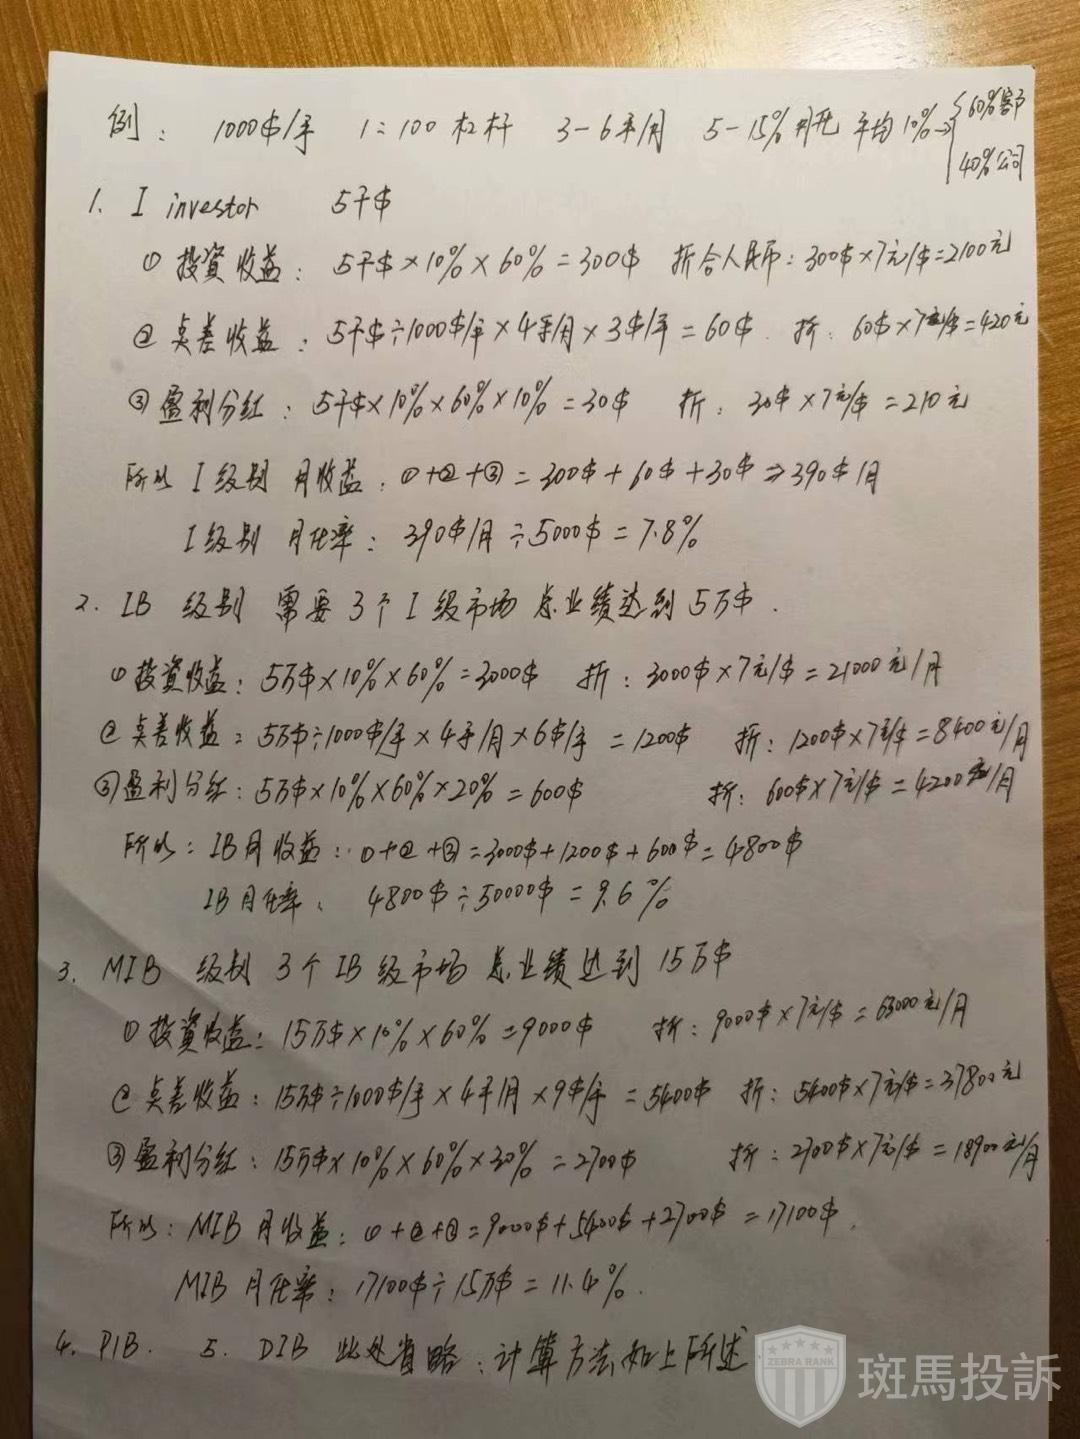 例： 1000$/手 1:100杠杆 3-6手/月 5-15%月化 平均10%→{60%客户
40%公司
1. I investor 5千$
① 投資收益： 5千$×10%×60%=300$ 折合人民币：300$×7元/$=2100元
② 点差收益： 5千$÷1000$/手×4手/月×3$/手=60$. 折：60$×7元/$=420元
③ 盈利分红： 5千$×10%×60%×10%=30$ 折：30$×7元/$=210元
所以 I级别 月收益：①+②+③=300$+60$+30$⇒390$/月
I级别 月化率：390$/月÷5000$=7.8%
2. IB 级别 需要3个I级市场 总业绩达到5万$.
① 投資收益：5万$×10%×60%=3000$ 折：3000$×7元/$=21000元/月
② 点差收益：5万$÷1000$/手×4手/月×6$/手=1200$ 折：1200$×7元/$=8400元/月
③ 盈利分红：5万$×10%×60%×20%=600$ 折：600$×7元/$=4200元/月
所以：IB月收益：①+②+③=3000$+1200$+600$=4800$
IB月化率： 4800$÷50000$=9.6%
3. MIB 级别 3个IB级市场 总业绩达到15万$
① 投資收益：15万$×10%×60%=9000$ 折：9000$×7元/$=63000元/月
② 点差收益：15万$÷1000$/手×4手/月×9$/手=5400$ 折：5400$×7元/$=37800元
③ 盈利分红：15万$×10%×60%×30%=2700$ 折：2700$×7元/$=18900元/月
所以：MIB月收益：①+②+③=9000$+5400$+2700$=17100$.
MIB月化率：17100$÷15万$=11.4%.
4. PIB. 5. DIB 此处省略：计算方法如上所述.
ZEBRA RANK
斑馬投訴